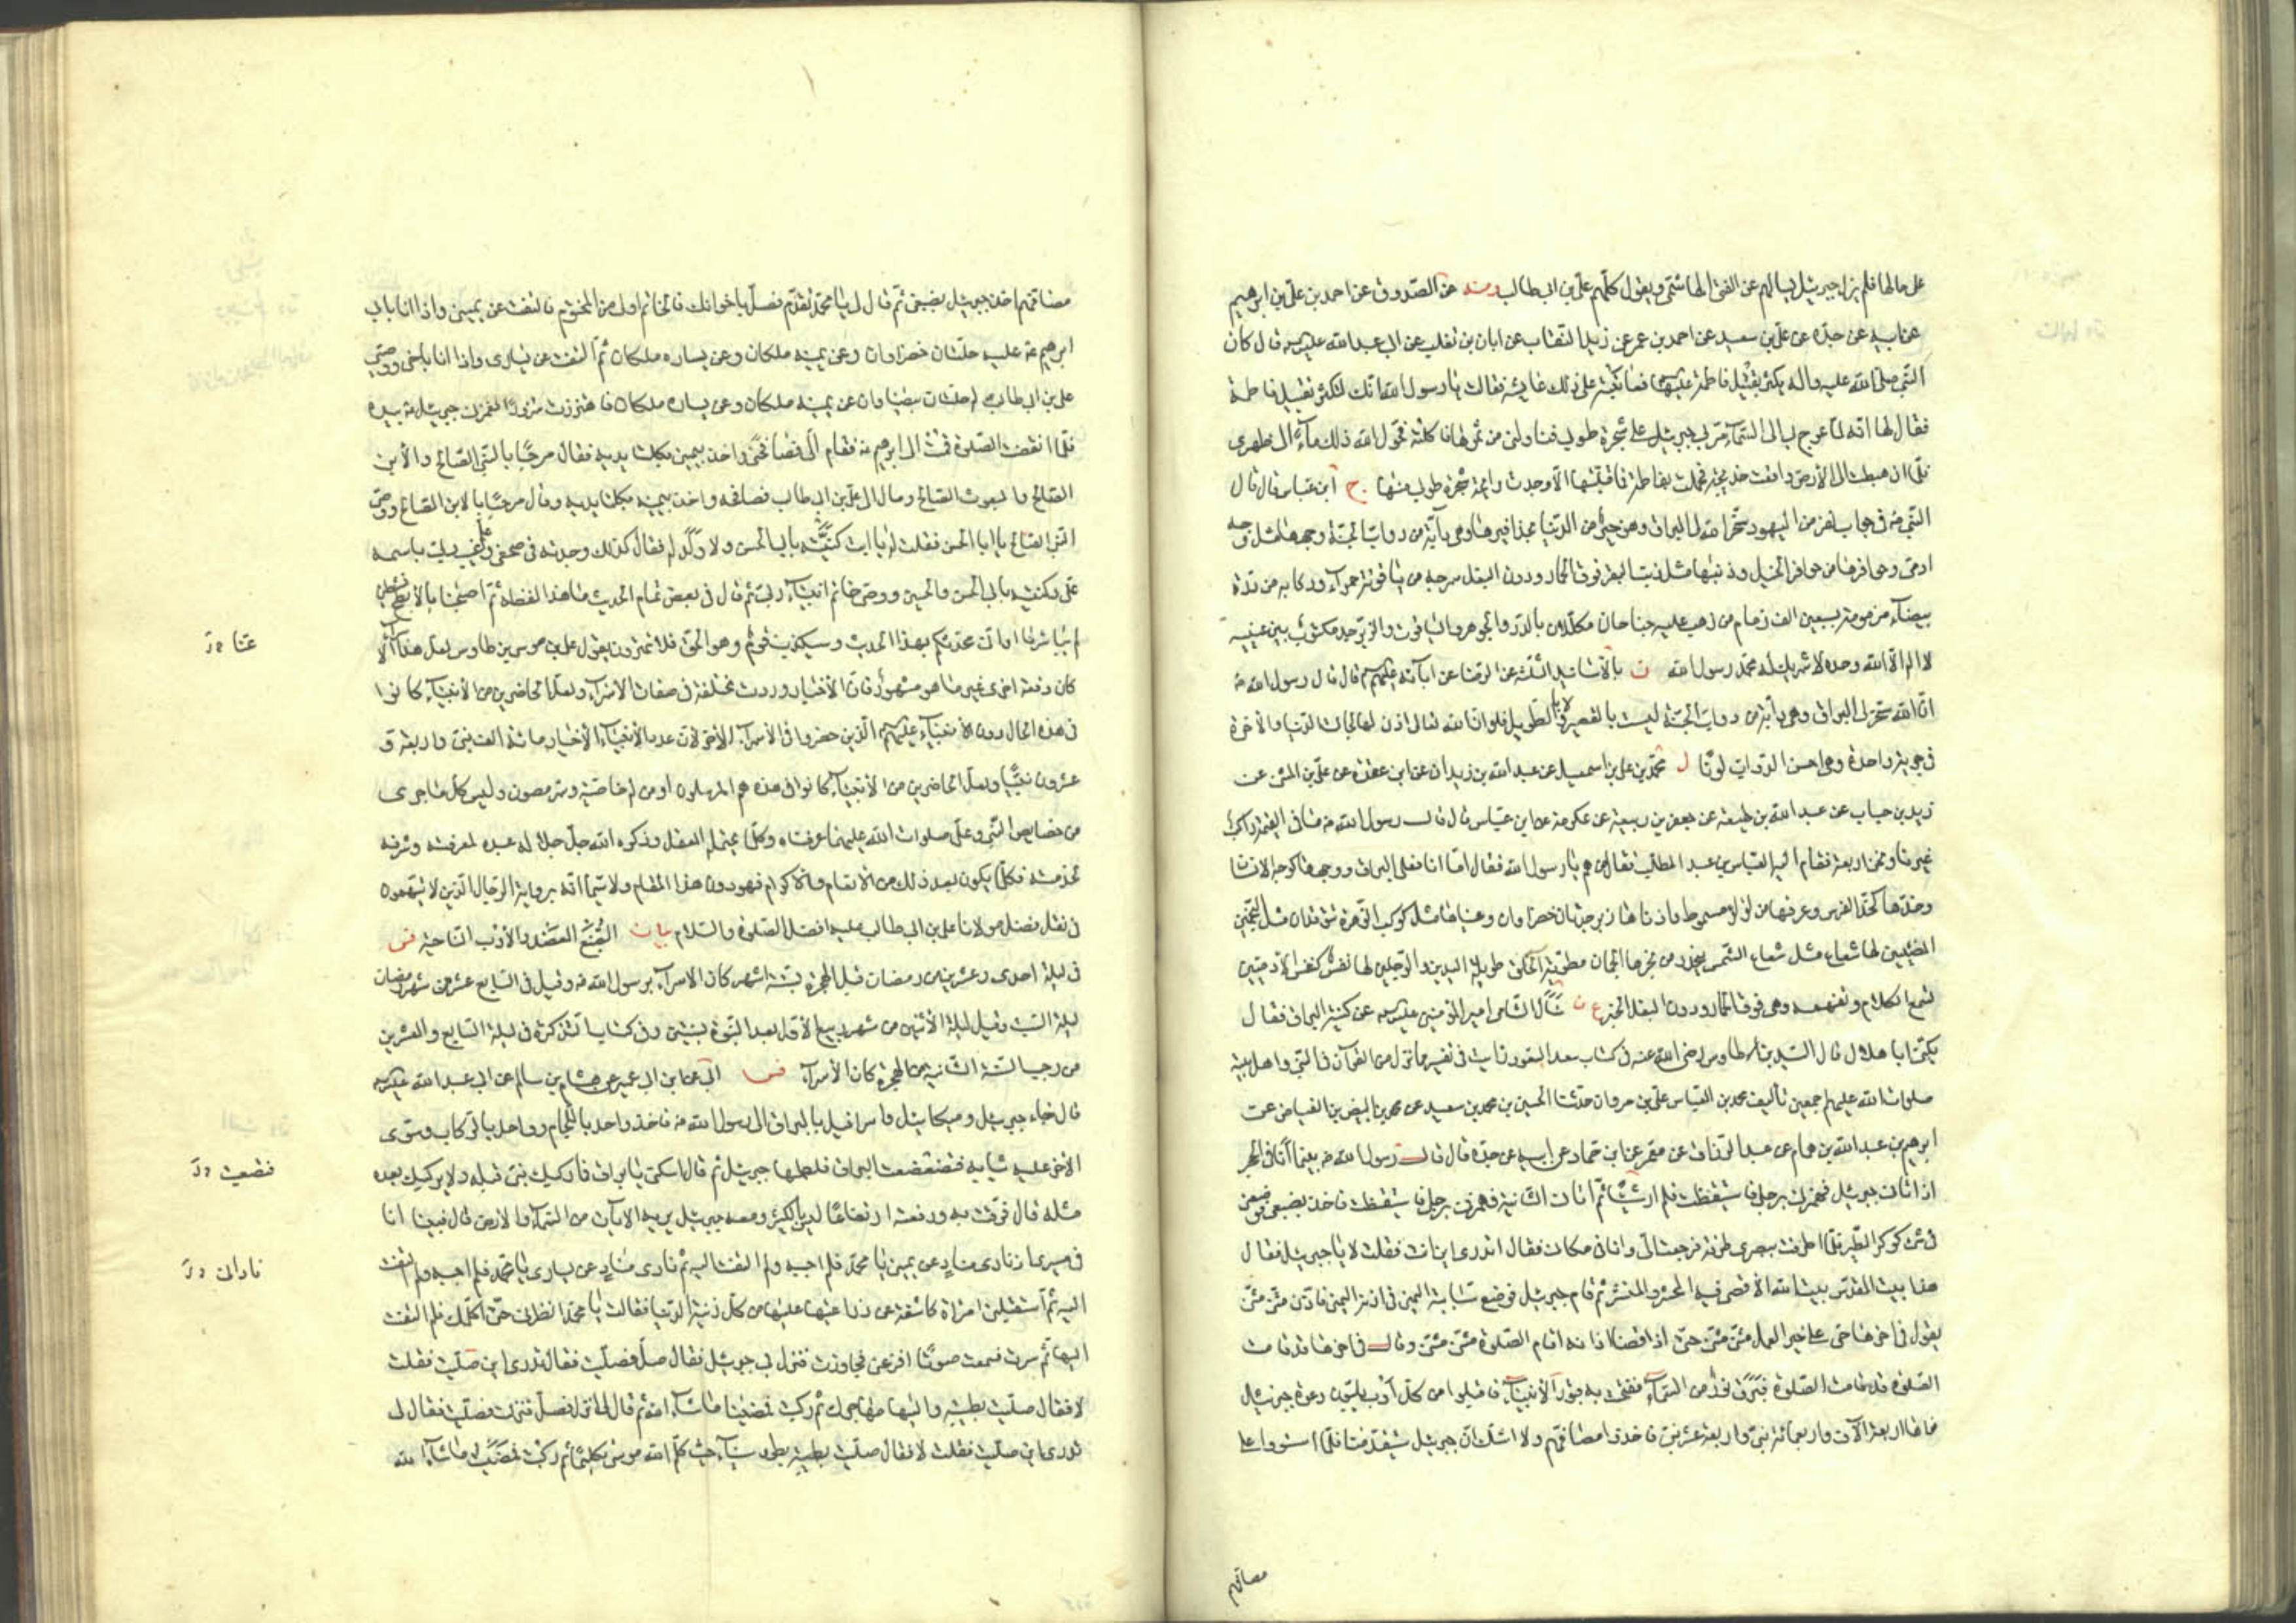 على حالها فلم يزل جبرئيل يسالهم عن الفتى الهاشمى ويقول كلهم على بن ابى طالب ومنه عن الصدوق عن احمد بن على بن ابرهيم
عن ابيه عن جده عن على بن سعيد عن احمد بن عمر عن زيد النقاب عن ابان بن تغلب عن ابى عبد الله عليه السلم قال كان
النبى صلى الله عليه واله يكثر تقبيل فاطمة عليها السلم فعاتبته على ذلك عايشة فقالت يا رسول الله انك لتكثر تقبيل فاطمة
فقال لها انه لما عرج بى الى السماء مر بى جبرئيل على شجرة طوبى فناولنى من ثمرها فاكلته فحول الله ذلك ماء الى ظهرى
فلما ان هبطت الى الارض واقعت خديجة فحملت بفاطمة فما قبلتها الا وجدت رايحة شجرة طوبى منها ج ابن عباس قال قال
النبى ص فى جواب نفر من اليهود سخر الله لى البراق وهو خير من الدنيا بحذافيرها وهى دابة من دواب الجنة وجهها مثل وجه
ادمى وحوافرها من حوافر الخيل وذنبها مثل ذنب البقر فوق الحمار ودون البغل سرجه من ياقوتة حمراء وركابه من درة
بيضاء مزمومة بسبعين الف زمام من ذهب عليه جناحان مكللان بالدر والجوهر والياقوت والزبرجد مكتوب بين عينيه
لا اله الا الله وحده لا شريك له محمد رسول الله ن بالاسانيد الثلثة عن الرضا عن ابائه عليهم السلم قال قال رسول الله ص
ان الله سخر لى البراق وهى دابة من دواب الجنة ليست بالقصير ولا بالطويل فلو ان الله تعالى اذن لها لجالت الدنيا والاخرة
فى جرية واحدة وهى احسن الدواب لونا ل محمد بن على بن اسمعيل عن عبد الله بن زيدان عن ابن عقدة عن على بن المثنى عن
زيد بن حباب عن عبد الله بن لهيعة عن جعفر بن ربيعة عن عكرمة عن ابن عباس قال قال رسول الله ص ما فى القيمة راكب
غيرنا ونحن اربعة فقام اليه العباس بن عبد المطلب فقال من هم يا رسول الله فقال اما انا فعلى البراق ووجهها كوجه الانسان
وخدها كخد الفرس وعرفها من لؤلؤ مسموط واذناها زبرجدتان خضراوان وعيناها مثل كوكب الزهرة تتوقدان مثل النجمين
المضيئين لها شعاع مثل شعاع الشمس ينحدر من نحرها الجمان مطوية الخلق طويلة اليدين والرجلين لها نفس كنفس الادميين
تسمع الكلام وتفهمه وهى فوق الحمار ودون البغل الخبر ع ن سال الشامى امير المؤمنين عليه السلم عن كنية البراق فقال
يكنى ابا هلال قال السيد بن طاوس رضى الله عنه فى كتاب سعد السعود رايت فى تفسير ما نزل من القرآن فى النبى واهل بيته
صلوات الله عليهم اجمعين تاليف محمد بن العباس على بن مروان حدثنا الحسين بن محمد بن سعيد عن محمد بن البيض بن الفياض عن
ابرهيم بن عبد الله بن همام عن عبد الرزاق عن معمر عن ابن حماد عن ابيه عن جده قال قال رسول الله ص بينما انا فى الحجر
اذ اتانى جبرئيل فهمزنى برجلى فاستيقظت فلم ار شيئا ثم اتانى الثانية فهمزنى برجلى فاستيقظت فاخذ بضبعى فوضعنى
فى شئ كوكر الطير فلما اطرقت ببصرى طرفة فرجعت الى وانا فى مكانى فقال اتدرى اين انت فقلت لا يا جبرئيل فقال
هذا بيت المقدس بيت الله الاقصى فيه المحشر والمنشر ثم قام جبرئيل فوضع سبابته اليمنى فى اذنه اليمنى فاذن مثنى مثنى
يقول فى اخرها حى على خير العمل مثنى مثنى حتى اذا قضى اذانه اقام الصلوة مثنى مثنى وقال فى اخرها قد قامت
الصلوة قد قامت الصلوة فبرق نور من السماء ففتحت به قبور الانبياء فاقبلوا من كل اوب يلبون دعوة جبرئيل
فوافى اربعة الآف واربعمائة نبى واربعة عشر نبى فاخذوا مصافهم ولا اشك ان جبرئيل سيقدمنا فلما استووا على
مصافهم
مصافهم اخذ جبرئيل بضبعى ثم قال لى يا محمد تقدم فصل باخوانك فالخاتم اولى من المختوم فالتفت عن يمينى واذا انا بابى
ابرهيم ع عليه حلتان خضراوان وعن يمينه ملكان وعن يساره ملكان ثم التفت عن يسارى واذا انا باخى ووصيى
على بن ابى طالب ع عليه حلتان بيضاوان عن يمينه ملكان وعن يساره ملكان فاهتززت سرورا فغمزنى جبرئيل ع بيده
فلما انقضت الصلوة قمت الى ابرهيم ع فقام الى فصافحنى واخذ بيمينى بكلتا يديه فقال مرحبا بالنبى الصالح والابن
الصالح والمبعوث الصالح ومال الى على بن ابى طالب فصافحه واخذ بيمينه بكلتا يديه وقال مرحبا بالابن الصالح ووصى
النبى الصالح يا ابا الحسن فقلت له يا ابت كنيته بابى الحسن ولا ولد له فقال كذلك وجدته فى صحفى وعلم غيب ربى باسمه
على وكنيته بابى الحسن والحسين ووصى خاتم انبياء ربى ثم قال فى بعض تمام الحديث ما هذا لفظه ثم اصبحنا بالابطح نشطين
لم يباشرنا عنا وانى محدثكم بهذا الحديث وسيكذب قوم وهو الحق فلا تمترون يقول على بن موسى بن طاوس لعل هذا الاسراء
كان دفعة اخرى غير ما هو مشهور فان الاخبار وردت مختلفة فى صفات الاسراء ولعل الحاضرين من الانبياء كانوا
فى هذه الحال دون الانبياء عليهم السلم الذين حضروا فى الاسراء الاخر لان عدد الانبياء الاخيار مائة الف نبى واربعة و
عشرون نبيا ولعل الحاضرين من الانبياء كانوا فى هذه هم المرسلون او من له خاصة وسر مصون وليس كل ما جرى
من خصايص النبى وعلى صلوات الله عليهما عرفناه وكلما يحتمله العقل وذكره الله جل جلاله عبده لمعرفته وشرفه
بخدمته فكلما يكون بعد ذلك من الانعام والاكرام فهو دون هذا المقام ولا سيما انه برواية الرجال الذين لا يتهمون
فى نقل فضل مولانا على بن ابى طالب عليه افضل الصلوة والسلام بيان الضبع العضد والاوب الناحية قب
فى ليلة احدى وعشرين من رمضان قبل الهجرة بستة اشهر كان الاسراء برسول الله ص وقيل فى السابع عشر من شهر رمضان
ليلة السبت وقيل ليلة الاثنين من شهر ربيع الاول بعد النبوة بسنتين وفى كتاب التذكرة فى ليلة السابع والعشرين
من رجب السنة الثانية من الهجرة كان الاسراء فس ابى عن ابن ابى عمير عن هشام بن سالم عن ابى عبد الله عليه السلم
قال جاء جبرئيل وميكائيل واسرافيل بالبراق الى رسول الله ص فاخذ واحد باللجام وواحد بالركاب وسوى
الاخر عليه ثيابه فتضعضعت البراق فلطمها جبرئيل ثم قال اسكنى يا براق فما ركبك نبى قبله ولا يركبك بعده
مثله قال فرقت به ورفعته ارتفاعا ليس بالكثير ومعه جبرئيل يريه الايات من السماء والارض قال فبينا انا
فى مسيرى اذ نادى مناد عن يمينى يا محمد فلم اجبه ولم التفت اليه ثم نادى مناد عن يسارى يا محمد فلم اجبه ولم التفت
اليه ثم استقبلتنى امراة كاشفة عن ذراعيها عليها من كل زينة الدنيا فقالت يا محمد انظرنى حتى اكلمك فلم التفت
اليها ثم سرت فسمعت صوتا افزعنى فجاوزت فنزل بى جبرئيل فقال صل فصليت فقال تدرى اين صليت فقلت
لا فقال صليت بطيبة واليها مهاجرك ثم ركبت فمضينا ما شاء الله ثم قال لى انزل فصل فنزلت فصليت فقال لى
تدرى اين صليت فقلت لا فقال صليت بطور سيناء حيث كلم الله موسى تكليما ثم ركبت فمضينا ما شاء الله
عنا
فتضعضعت
نادانى